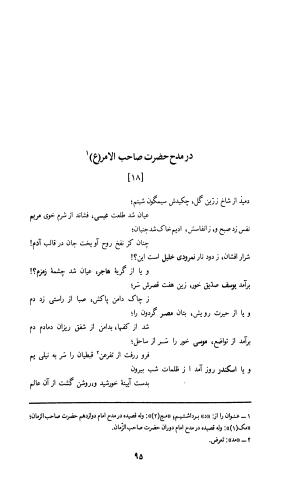 در مدح حضرت صاحب الامر(ع)۱
[۱۸]
دمید از شاخ زرّین گل، چکیدش سیمگون شبنم؛
عیان شد طلعت عیسی، فشاند از شرم خوی مریم
نفس زد صبح و، ز انفاسش، ادیم خاک شد جنبان؛
چنان کز نفخ روح آویخت جان در قالب آدم!
شرار افشان، ز دود نار نمرودی خلیل است این؟!
و یا از گریهٔ هاجر، عیان شد چشمهٔ زمزم؟!
برآمد یوسف صدیق خور، زین هفت قصرش سَر؛
ز چاک دامن پاکش، صبا از راستی زد دم
و یا از حیرت رویش، بتان مصر گردون را؛
شد از کفها، بدامن از شفق ریزان دمادم دم
برآمد از تواضع، موسی خور را سر از ساحل؛
فرو رفت از تفرعن۲ قبطیان را سر به نیلی یم
و یا اسکندر روز آمد از ظلمات شب بیرون
بدست آیینهٔ خورشید و، روشن گشت از آن عالم
۱ ــ عنوان را از: «د» برداشتیم، «مج(۲)»: وله قصیده در مدح امام دوازدهم حضرت صاحب الزمان؛
«مک(۱)»: وله قصیده در مدح امام دوران حضرت صاحب الزّمان.
۲ ــ «مد»: تعرض.
۹۵